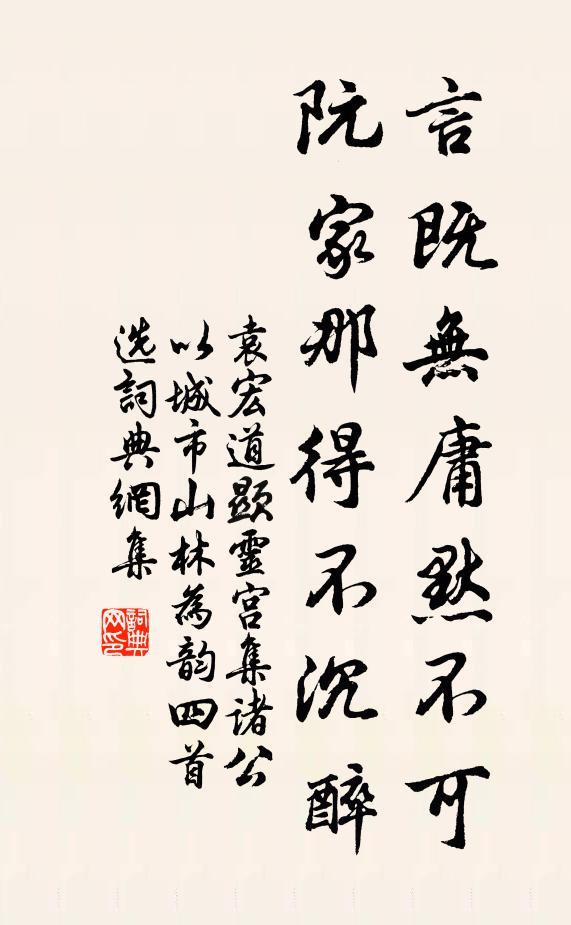 言既無庸默不可
阮家那得不沉醉
袁宏道顯靈宫集諸公
以城市山林為韵四首
选詞典網集
詞典
网印